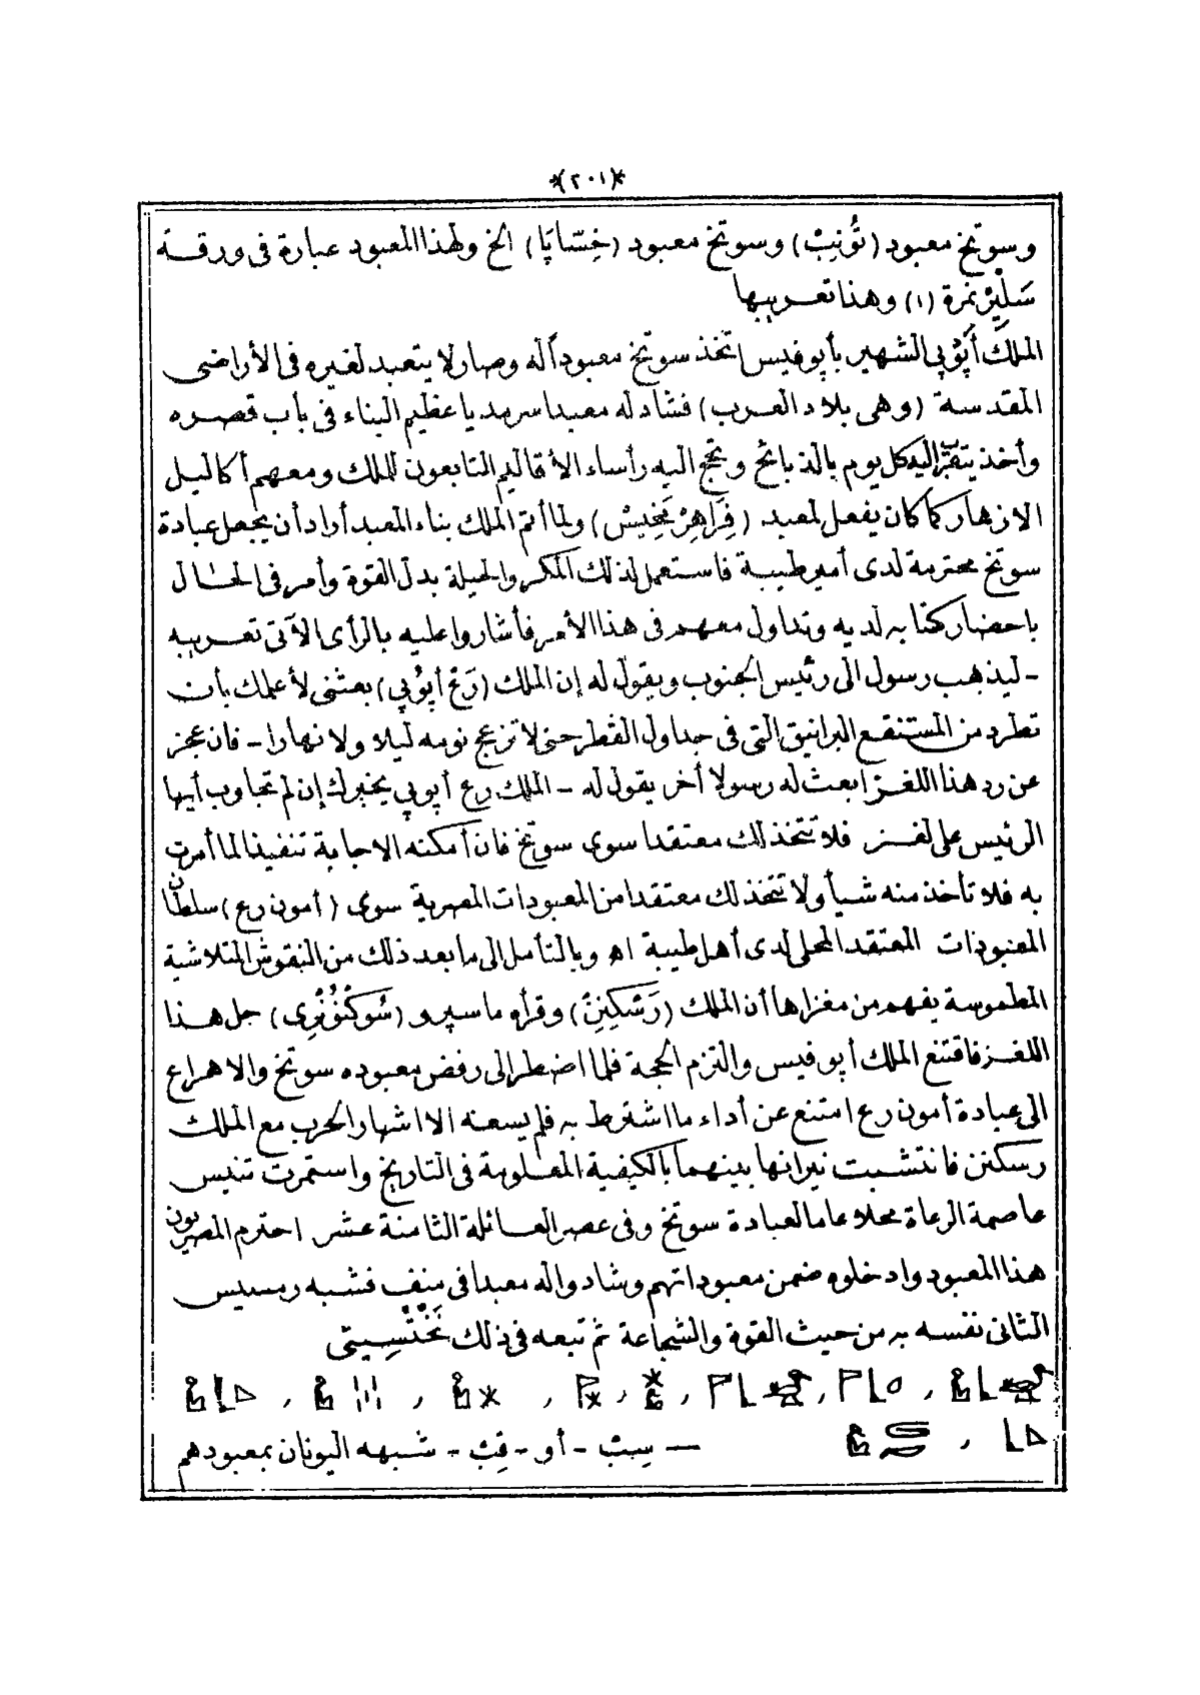 *(٢٠١)*
وسوتخ معبود (تُونِبْ) وسوتخ معبود (خِسَّاپَا) الخ ولهذا المعبود عبارة فى ورقة
سَلِيرْ نمرة (١) وهذا تعريبها
الملك أَپُوپِي الشهير بأپوفيس اتخذ سوتخ معبودا له وصار لا يتعبد لغيره فى الأراضى
المقدسة (وهى بلاد العرب) فشاد له معبدا سرمديا عظيم البناء فى باب قصره
وأخذ يتقرّب اليه كل يوم بالذبائح وتحج اليه رأساء الأقاليم التابعون للملك ومعهم أكاليل
الازهار كما كان يفعل لمعبد (فِرَاهِرْ نَخِيسْ) ولما أتم الملك بناء المعبد أراد أن يجعل عبادة
سوتخ محترمة لدى أمير طيبة فاستعمل لذلك المكر والحيلة بدل القوة وأمر فى الحال
باحضار كتابه لديه وتداول معهم فى هذا الأمر فأشاروا عليه بالرأى الآتى تعريبه
- ليذهب رسول الى رئيس الجنوب ويقول له إن الملك (رَعْ أپُوپِي) بعثنى لأعلمك بأن
تطرد من المستنقع البرانيق التى فى جداول القطر حتى لا تزعج نومه ليلا ولا نهارا - فان عجز
عن رد هذا اللغز ابعث له رسولا أخر يقول له - الملك رع أپوپي يخبرك إن لم تجاوب أيها
الرئيس على لغز فلا تتخذ لك معتقدا سوى سوتخ فان أمكنه الاجابة تنفيذا لما أمرت
به فلا تأخذ منه شيأ ولا تتخذ لك معتقدا من المعبودات المصرية سوى (أمون رع) سلطان
المعبودات المعتقد المحلى لدى أهل طيبة اه وبالتأمل الى ما بعد ذلك من النقوش المتلاشية
المطموسة يفهم من مغزاها أن الملك (رَسْكِنِنْ) وقرأه ماسپرو (سُوكْنُونْرِى) حل هذا
اللغز فاقتنع الملك أپوفيس والتزم الحجة فلما اضطر الى رفض معبوده سوتخ والاهراع
الى عبادة أمون رع امتنع عن أداء ما اشترط به فلم يسعه الا اشهار الحرب مع الملك
رسكنن فانتشبت نيرانها بينهما بالكيفية المعلومة فى التاريخ واستمرت تنيس
عاصمة الرعاة محلا عاما لعبادة سوتخ وفى عصر العائلة الثامنة عشر احترم المصريون
هذا المعبود وادخلوه ضمن معبوداتهم وشادوا له معبدا فى منف فشبه رمسيس
الثانى نفسه به من حيث القوة والشجاعة ثم تبعه فى ذلك نَخْتْسِيتى
— سِتْ - أو - تِتْ - شبهه اليونان بمعبودهم